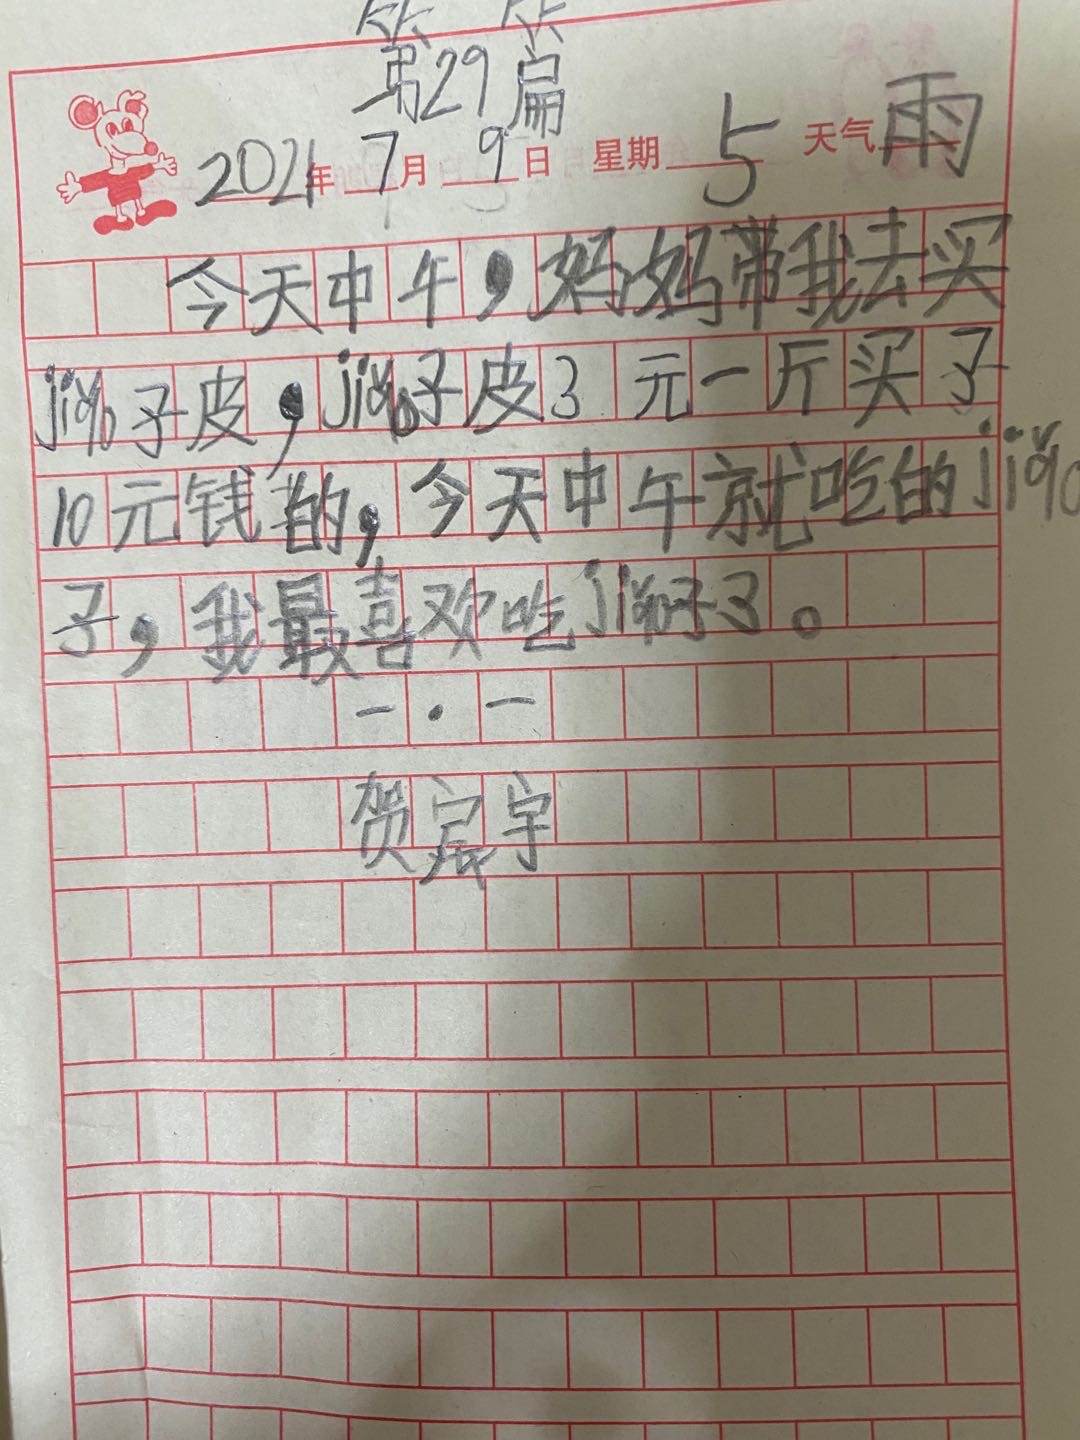 第29篇
2021年7月9日 星期5 天气雨
今天中午，妈妈带我去买
jiǎo子皮，jiǎo子皮3元一斤买了
10元钱的，今天中午就吃的jiǎo
子，我最喜欢吃jiǎo子了。
一·一
贺宸宇